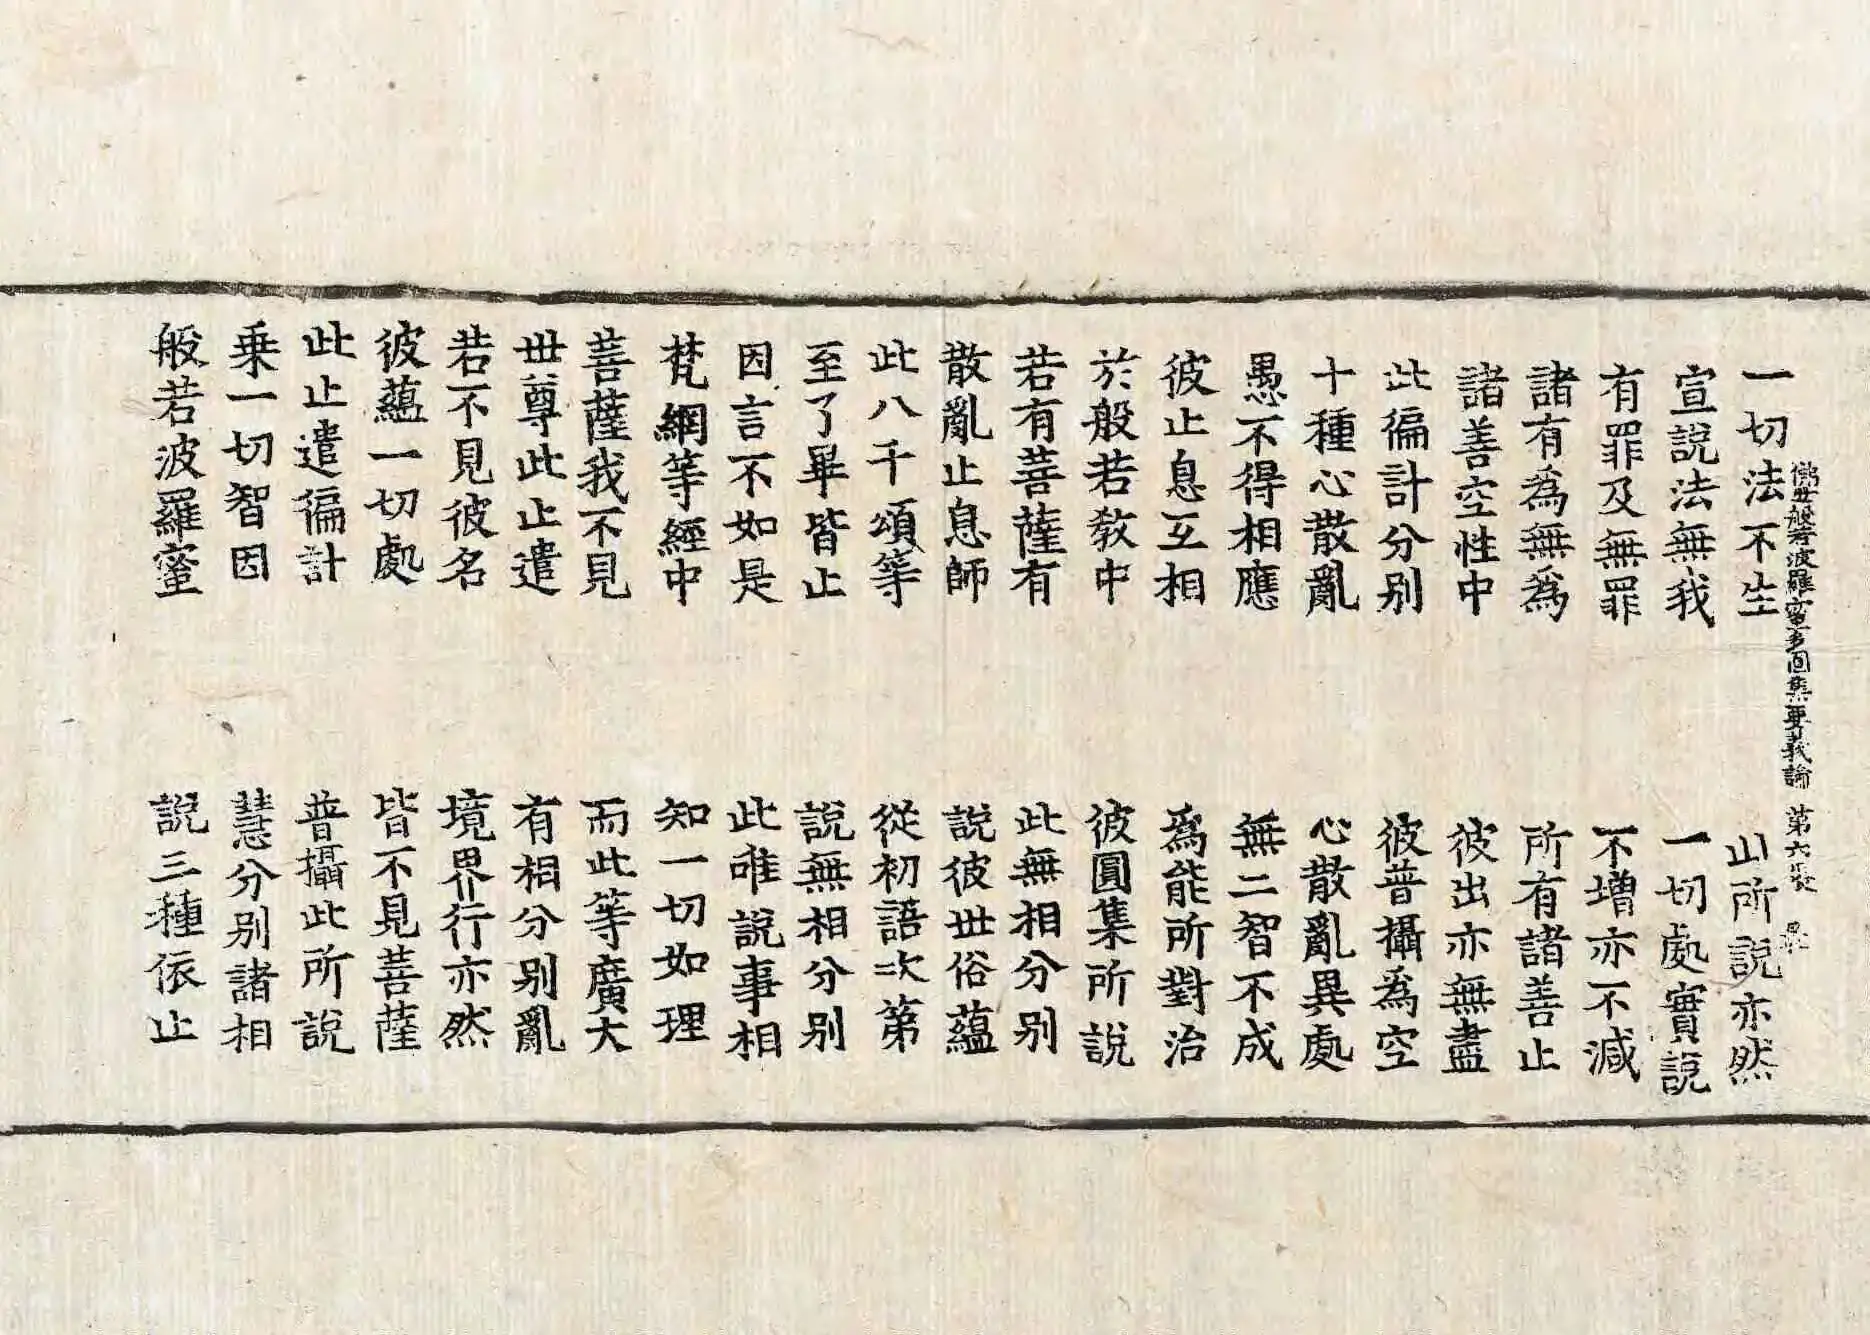 佛母般若波羅蜜多圓集要義論 第六張
一切法不生 此所說亦然
宣說法無我 一切處實說
有罪及無罪 不增亦不減
諸有爲無爲 所有諸善止
諸善空性中 彼出亦無盡
此徧計分别 彼普攝爲空
十種心散亂 心散亂異處
愚不得相應 無二智不成
彼止息互相 爲能所對治
於般若教中 彼圓集所說
若有菩薩有 此無相分别
散亂止息師 說彼世俗蘊
此八千頌等 從初語次第
至了畢皆止 說無相分别
因言不如是 此唯說事相
梵網等經中 知一切如理
菩薩我不見 而此等廣大
世尊此止遣 有相分别亂
若不見彼名 境界行亦然
彼蘊一切處 皆不見菩薩
此止遣徧計 普攝此所說
乗一切智因 慧分别諸相
般若波羅蜜 說三種依止